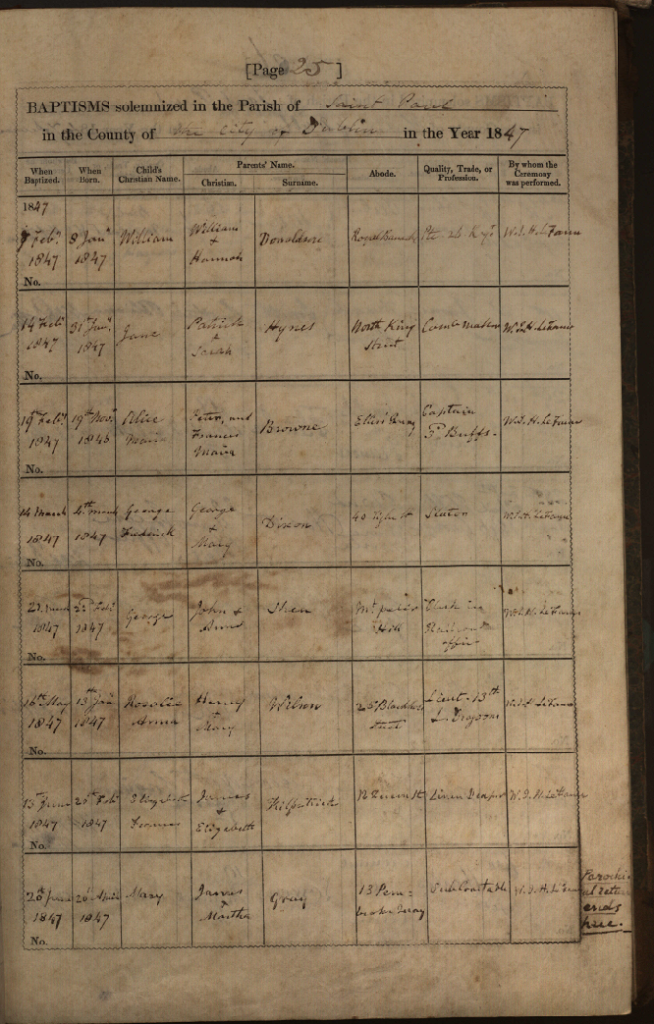 [Page 25]
BAPTISMS solemnized in the Parish of Saint Paul
in the County of the City of Dublin in the Year 1847
When Baptized. When Born. Child's Christian Name. Parents' Name. Christian. Surname. Abode. Quality, Trade, or Profession. By whom the Ceremony was performed.
1847
7 Feby. 1847 8 Jany. 1847 William William & Hannah Donaldson Royal Barrack Pte 26 W.J.H. LeFanu
No.
14 Feby. 1847 31st Jany. 1847 Jane Patrick & Sarah Hynes North King Street Comb maker W.J.H. LeFanu
No.
19th Feby. 1847 19th Novr. 1846 Alice Maria Peter, and Frances Maria Browne Ellis' Quay Captain Buffs. W.J.H. LeFanu
No.
14 March 1847 4th March 1847 George Frederick George & Mary Dixon 40 W.J.H. LeFanu
No.
1847 Feby. 1847 George John & Anne Shea Hill Clerk in Railroad office W.J.H. LeFanu
No.
16th May 1847 13th Jany. 1847 Rosalie Anna Henry & Mary Wilson 25 Street Lieut. 13th Lt. Dragoons W.J.H. LeFanu
No.
13th June 1847 Feby. 1847 Elizabeth Frances James & Elizabeth Kilpatrick 12 Linen Draper W.J.H. LeFanu
No.
20th June 1847 April 1847 Mary James & Martha Gray 13 Pembroke Quay Sub Constable W.J.H. LeFanu
No.
Parochial return
ends
here.